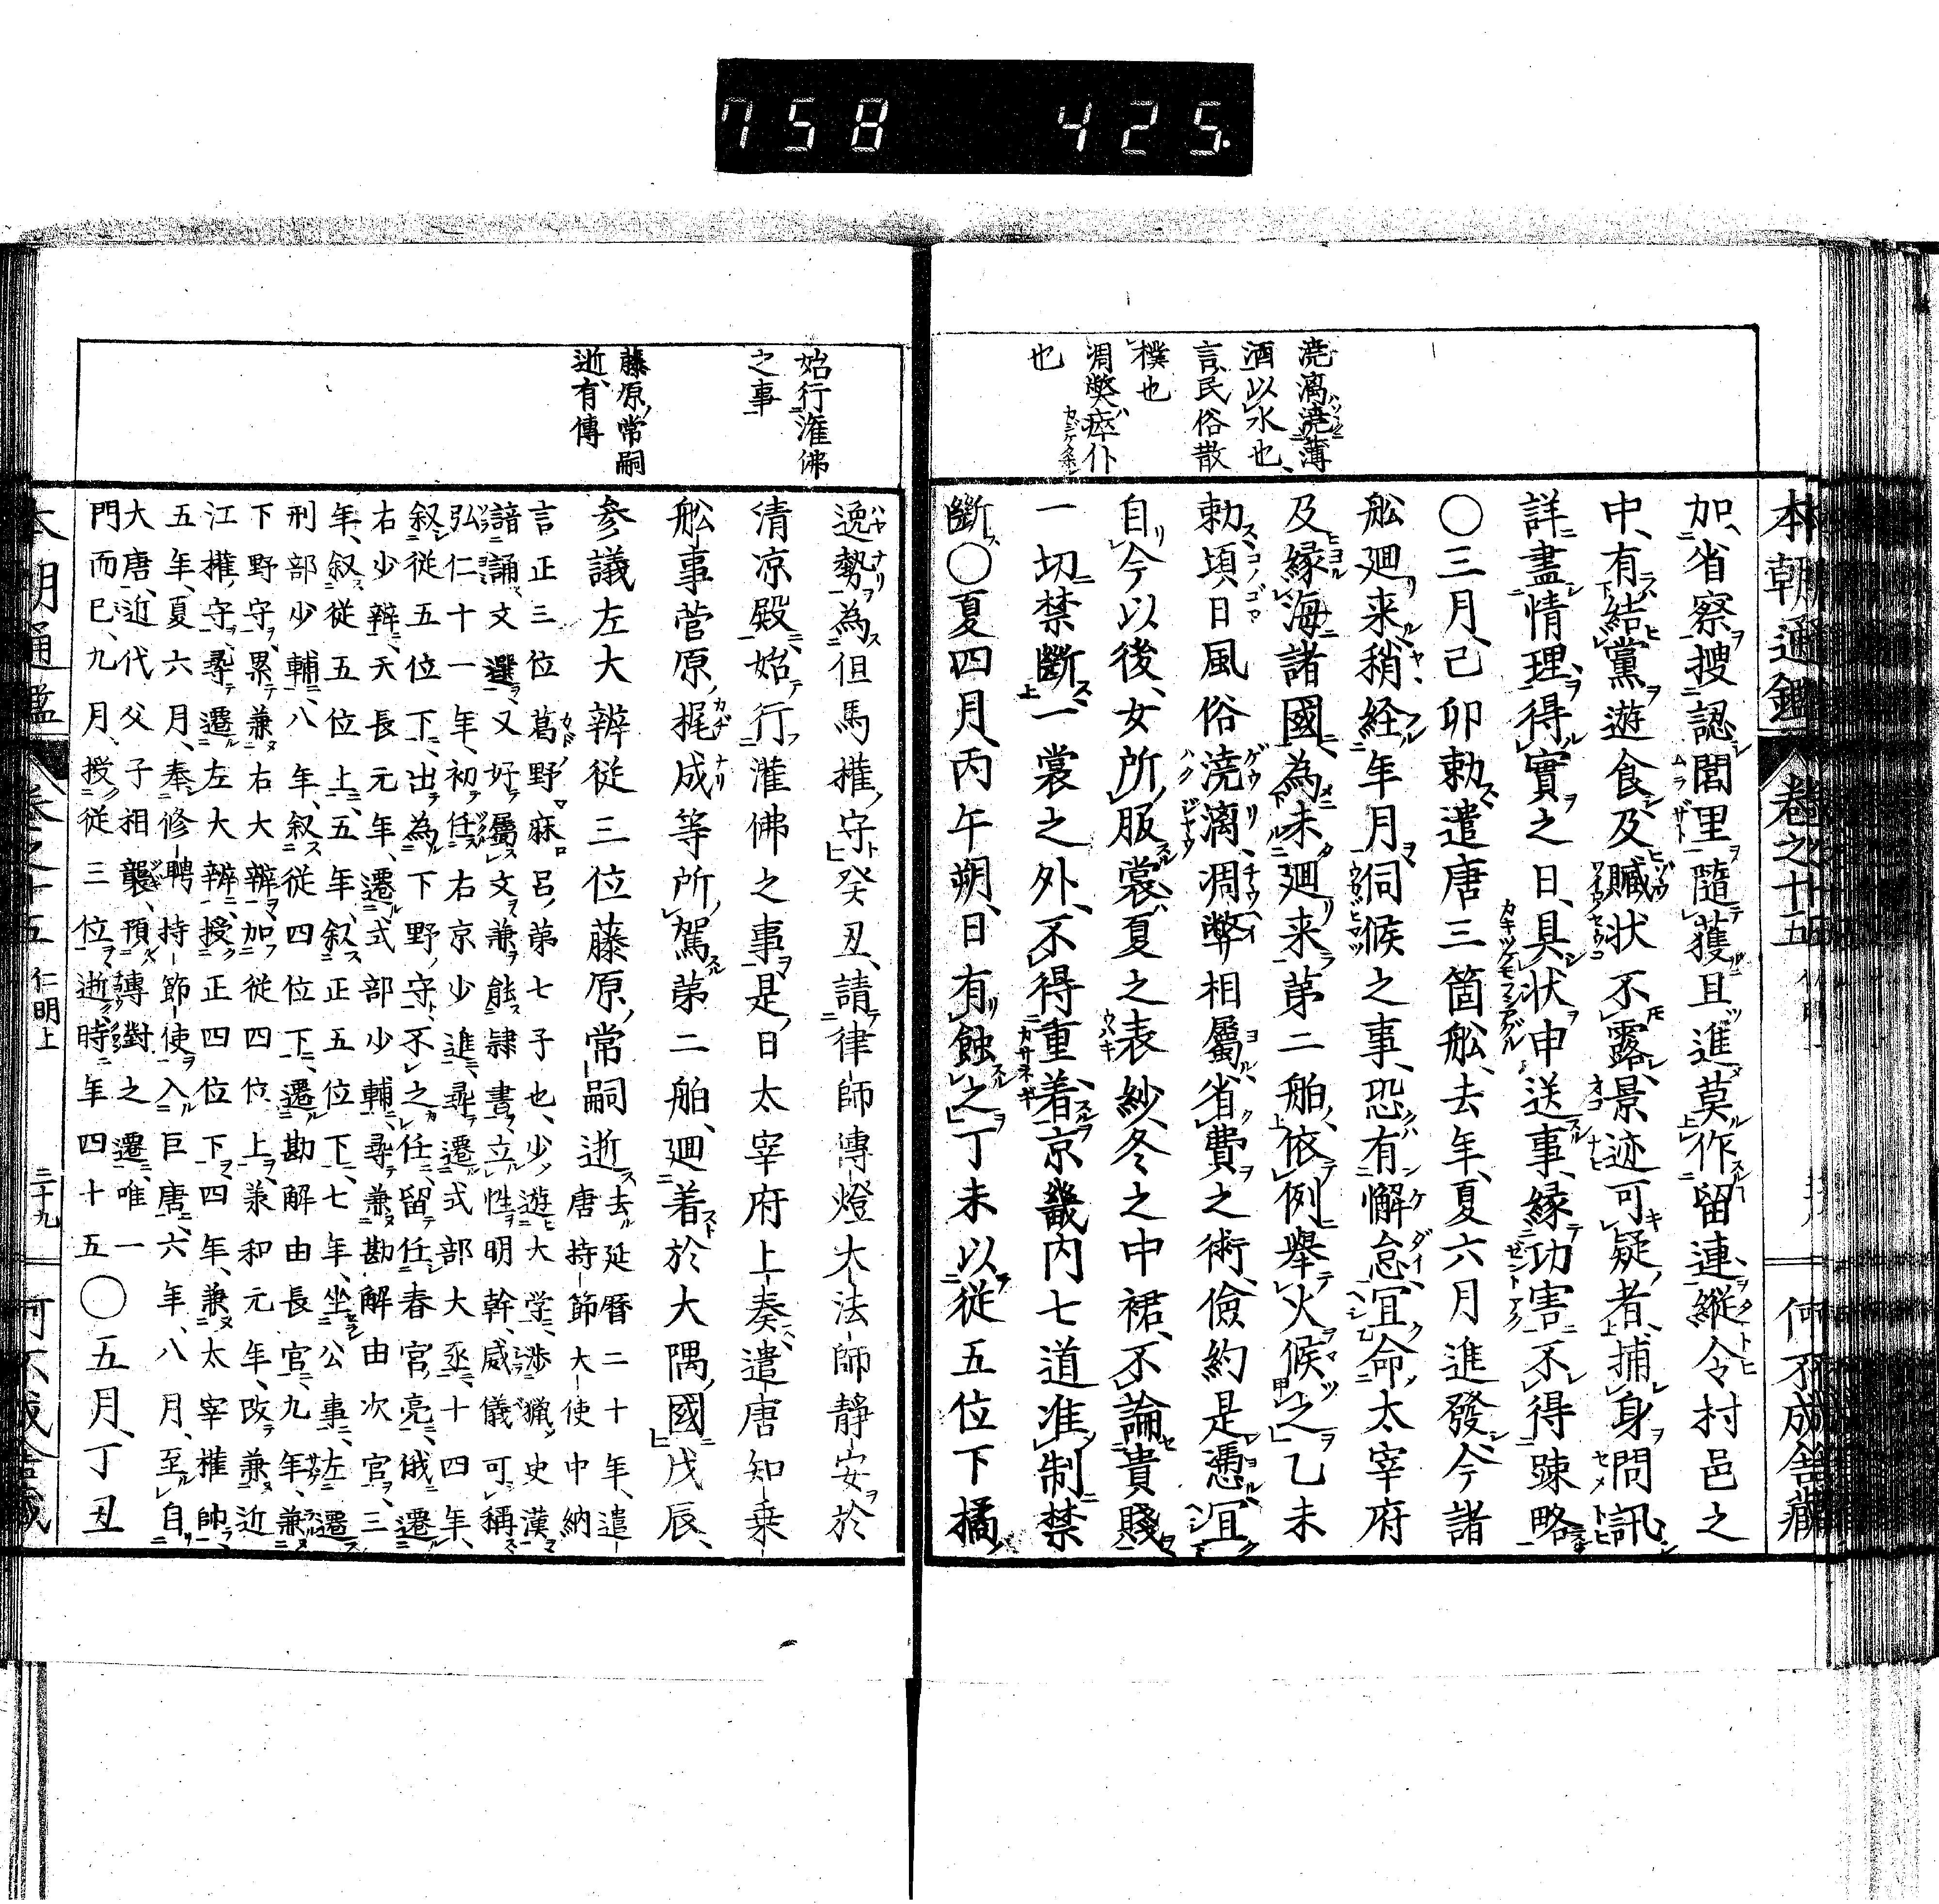 758 425.
本朝通鑑 卷之十五 何不成舎藏
澆漓澆薄
酒以水也
言民俗散
樸也
凋弊瘁仆
也
加省察搜認閭里隨獲且進莫作留連縱令村邑之
中有結黨遊食及贓状不露景迹可疑者捕身問訊
詳盡情理得實之日具状申送事縁功害不得踈略
〇三月己卯勅遣唐三箇舩去年夏六月進發今諸
舩廻来稍経年月伺候之事恐有懈怠冝命太宰府
及縁海諸國為未廻来第二舶依例舉火候之乙未
勅頃日風俗澆漓凋弊相屬省費之術儉約是憑冝
自今以後女所服裳夏之表紗冬之中裙不論貴賤
一切禁斷一裳之外不得重着京畿内七道准制禁
斷〇夏四月丙午朔日有蝕之丁未以従五位下橘
始行潅佛
之事
藤原常嗣
逝有傳
逸勢為但馬權守癸丑請律師傳燈大法師靜安於
清凉殿始行灌佛之事是日太宰府上奏遣唐知乗
舩事菅原梶成等所駕第二舶廻着於大隅國戊辰
参議左大辨従三位藤原常嗣逝去延曆二十年遣
唐持節大使中納
言正三位葛野麻呂第七子也少遊大学渉獵史漢
諳誦文選又好屬文兼能隷書立性明幹威儀可稱
弘仁十一年初任右京少進尋遷式部大丞十四年
叙従五位下出為下野守不之任留任春官亮俄遷
右少辨天長元年遷式部少輔尋兼勘解由次官三
年叙従五位上五年叙正五位下七年坐公事左遷
刑部少輔八年叙従四位下遷勘解由長官九年兼
下野守累兼右大辨加従四位上兼和元年改兼近
江權守尋遷左大辨授正四位下四年兼太宰權帥
五年夏六月奉修聘持節使入巨唐六年八月至自
大唐近代父子相襲預轉對之遷唯一
門而已九月授従三位逝時年四十五〇五月丁丑
本朝通鑑 卷之十五 仁明上 三十九 何不成舎藏